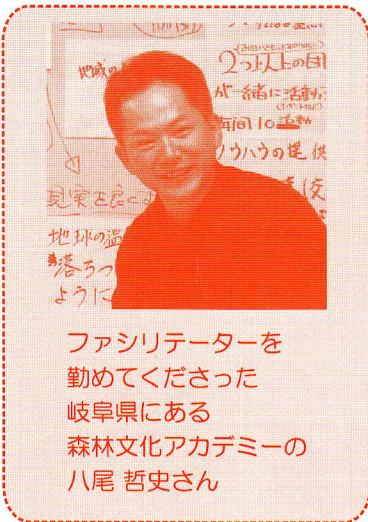 地域の
2つ以上の自
が一緒に活動
年間10
ノウハウの提供
地球の温
落ちつ
ように
ファシリテーターを
勤めてくださった
岐阜県にある
森林文化アカデミーの
八尾 哲史さん